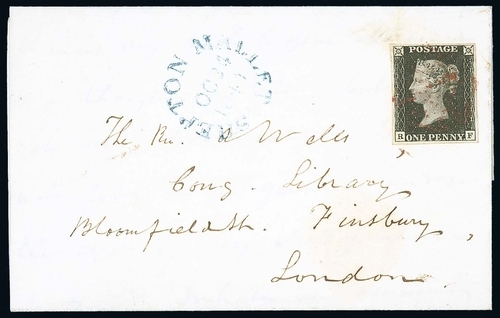 SHEPTON MALLET
OC 24
POSTAGE
R ONE PENNY F
The Rev. A Wells
Cong. Library
Bloomfield St. Finsbury,
London